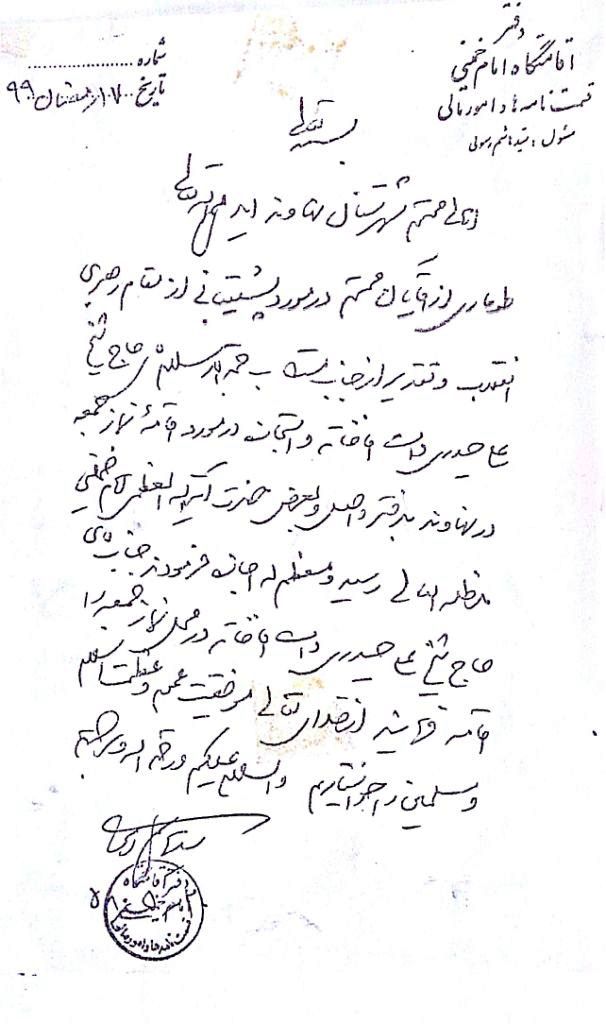 دفتر
اقامتگاه امام خمینی
قسمت نامه ها و امور مالی
مسئول : سید هاشم رسولی
شماره ......................
تاریخ ۱۷ رمضان ۹۹
بسمه تعالی
اهالی محترم شهرستان نهاوند ایدهم الله تعالی
طوماری از آقایان محترم در مورد پشتیبانی از مقام رهبری
انقلاب و تقدیر از جناب مستطاب حجة الاسلام آقای حاج شیخ
علی حیدری دامت افاضاته و استجازه در مورد اقامهٔ نماز جمعه
در نهاوند بدفتر واصل و بعرض حضرت آیت الله العظمی امام خمینی
مدظله العالی رسید و معظم له اجازه فرمودند جناب آقای
حاج شیخ علی حیدری دامت افاضاته در محل نماز جمعه را
اقامه فرمایند از خدای تعالی موفقیت عموم و عظمت اسلام
و مسلمین را خواستاریم والسلام علیکم و رحمة الله و برکاته
سید هاشم رسولی
دفتر اقامتگاه
امام خمینی
قسمت نامه ها و امور مالی